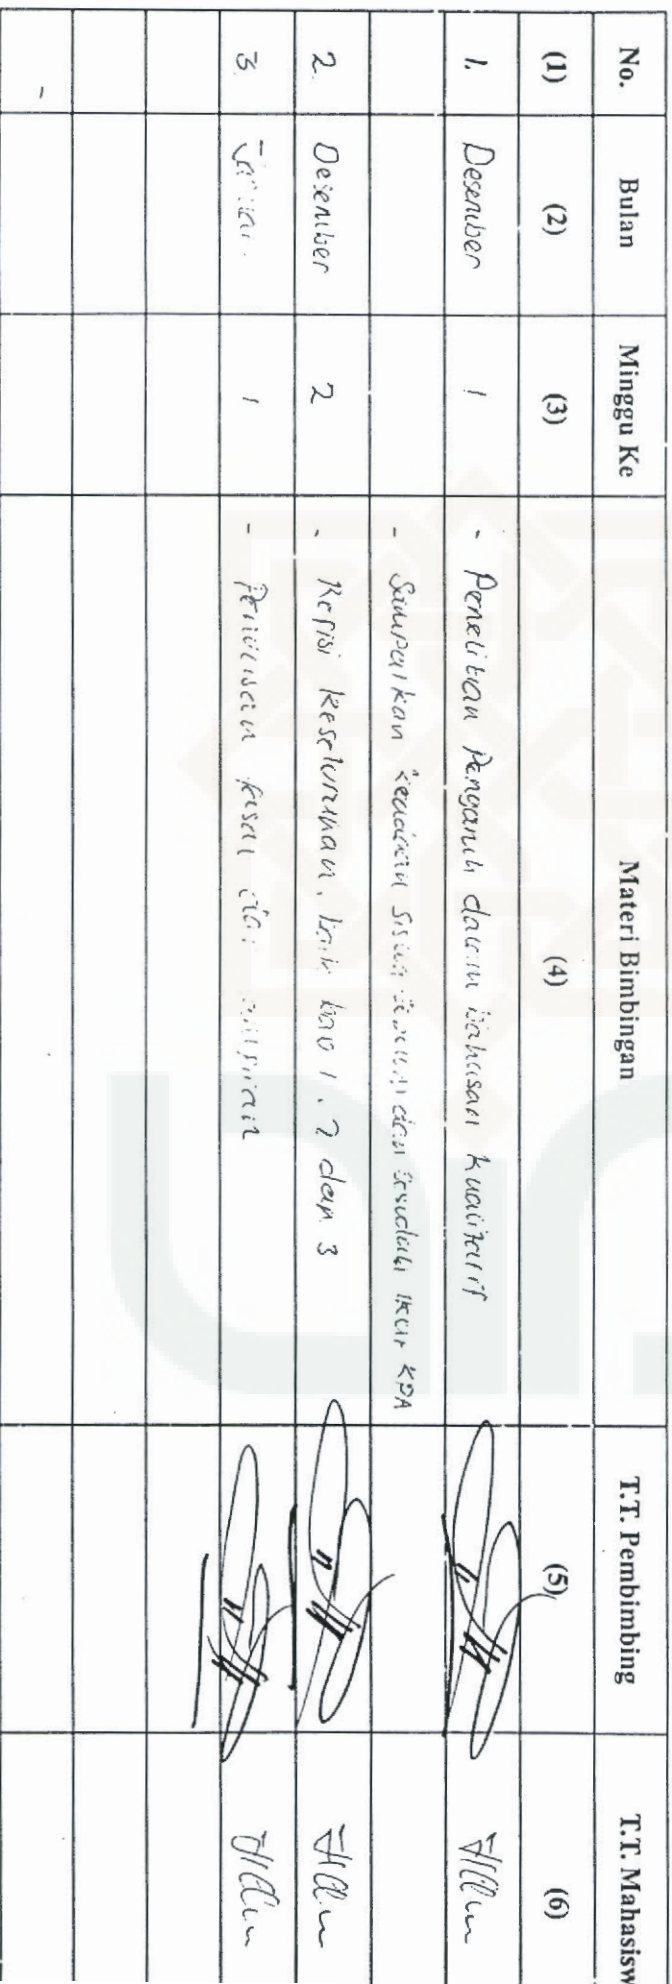 No. Bulan Minggu Ke Materi Bimbingan T.T. Pembimbing T.T. Mahasisw
(1) (2) (3) (4) (5) (6)
1. Desember 1 - Penelitian Pengaruh dalam bahasan kualitatif
- Sampaikan keadaan siswa sebelum dan sesudah ikut KPA
2. Desember 2 - Refisi keseluruhan, baik bab 1, 2 dan 3
3 1 -
-